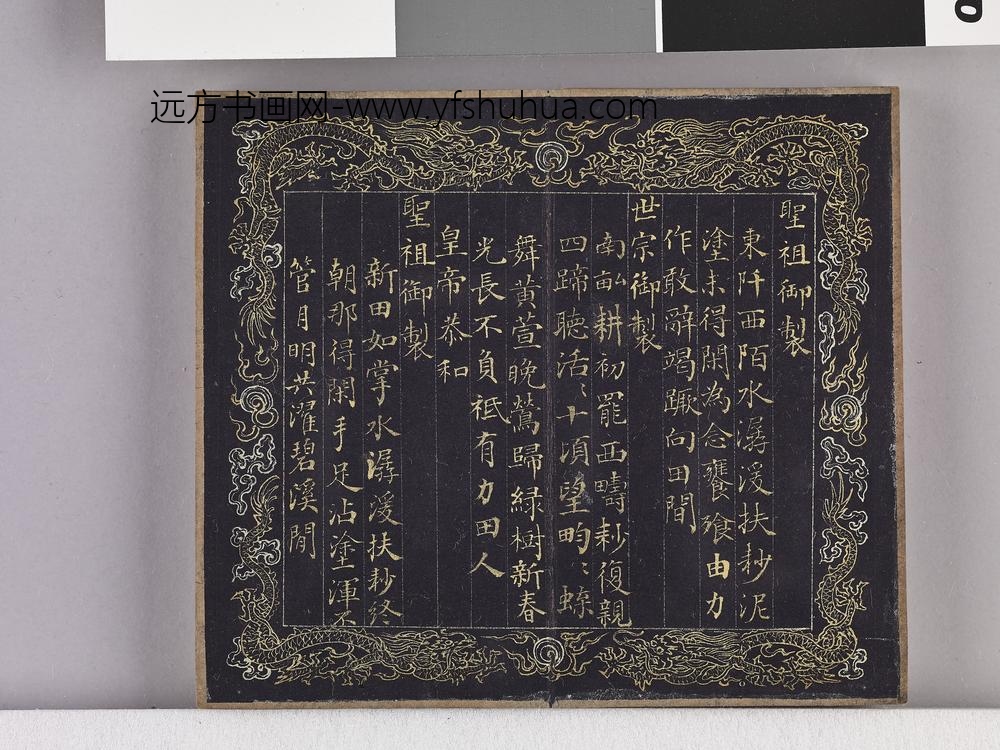 远方书画网-www.yfshuhua.com
聖祖御製
東阡西陌水潺湲扶耖泥
塗未得閑為念饔飱由力
作敢辭竭蹶向田間
世宗御製
南畝耕初罷西疇耖復親
四蹄聽活〻十頃望畇〻蝶
舞黃萱晚鶯歸緑樹新春
光長不負祗有力田人
皇帝恭和
聖祖御製
新田如掌水潺湲扶耖終
朝那得閑手足沾塗渾不
管月明共濯碧溪間